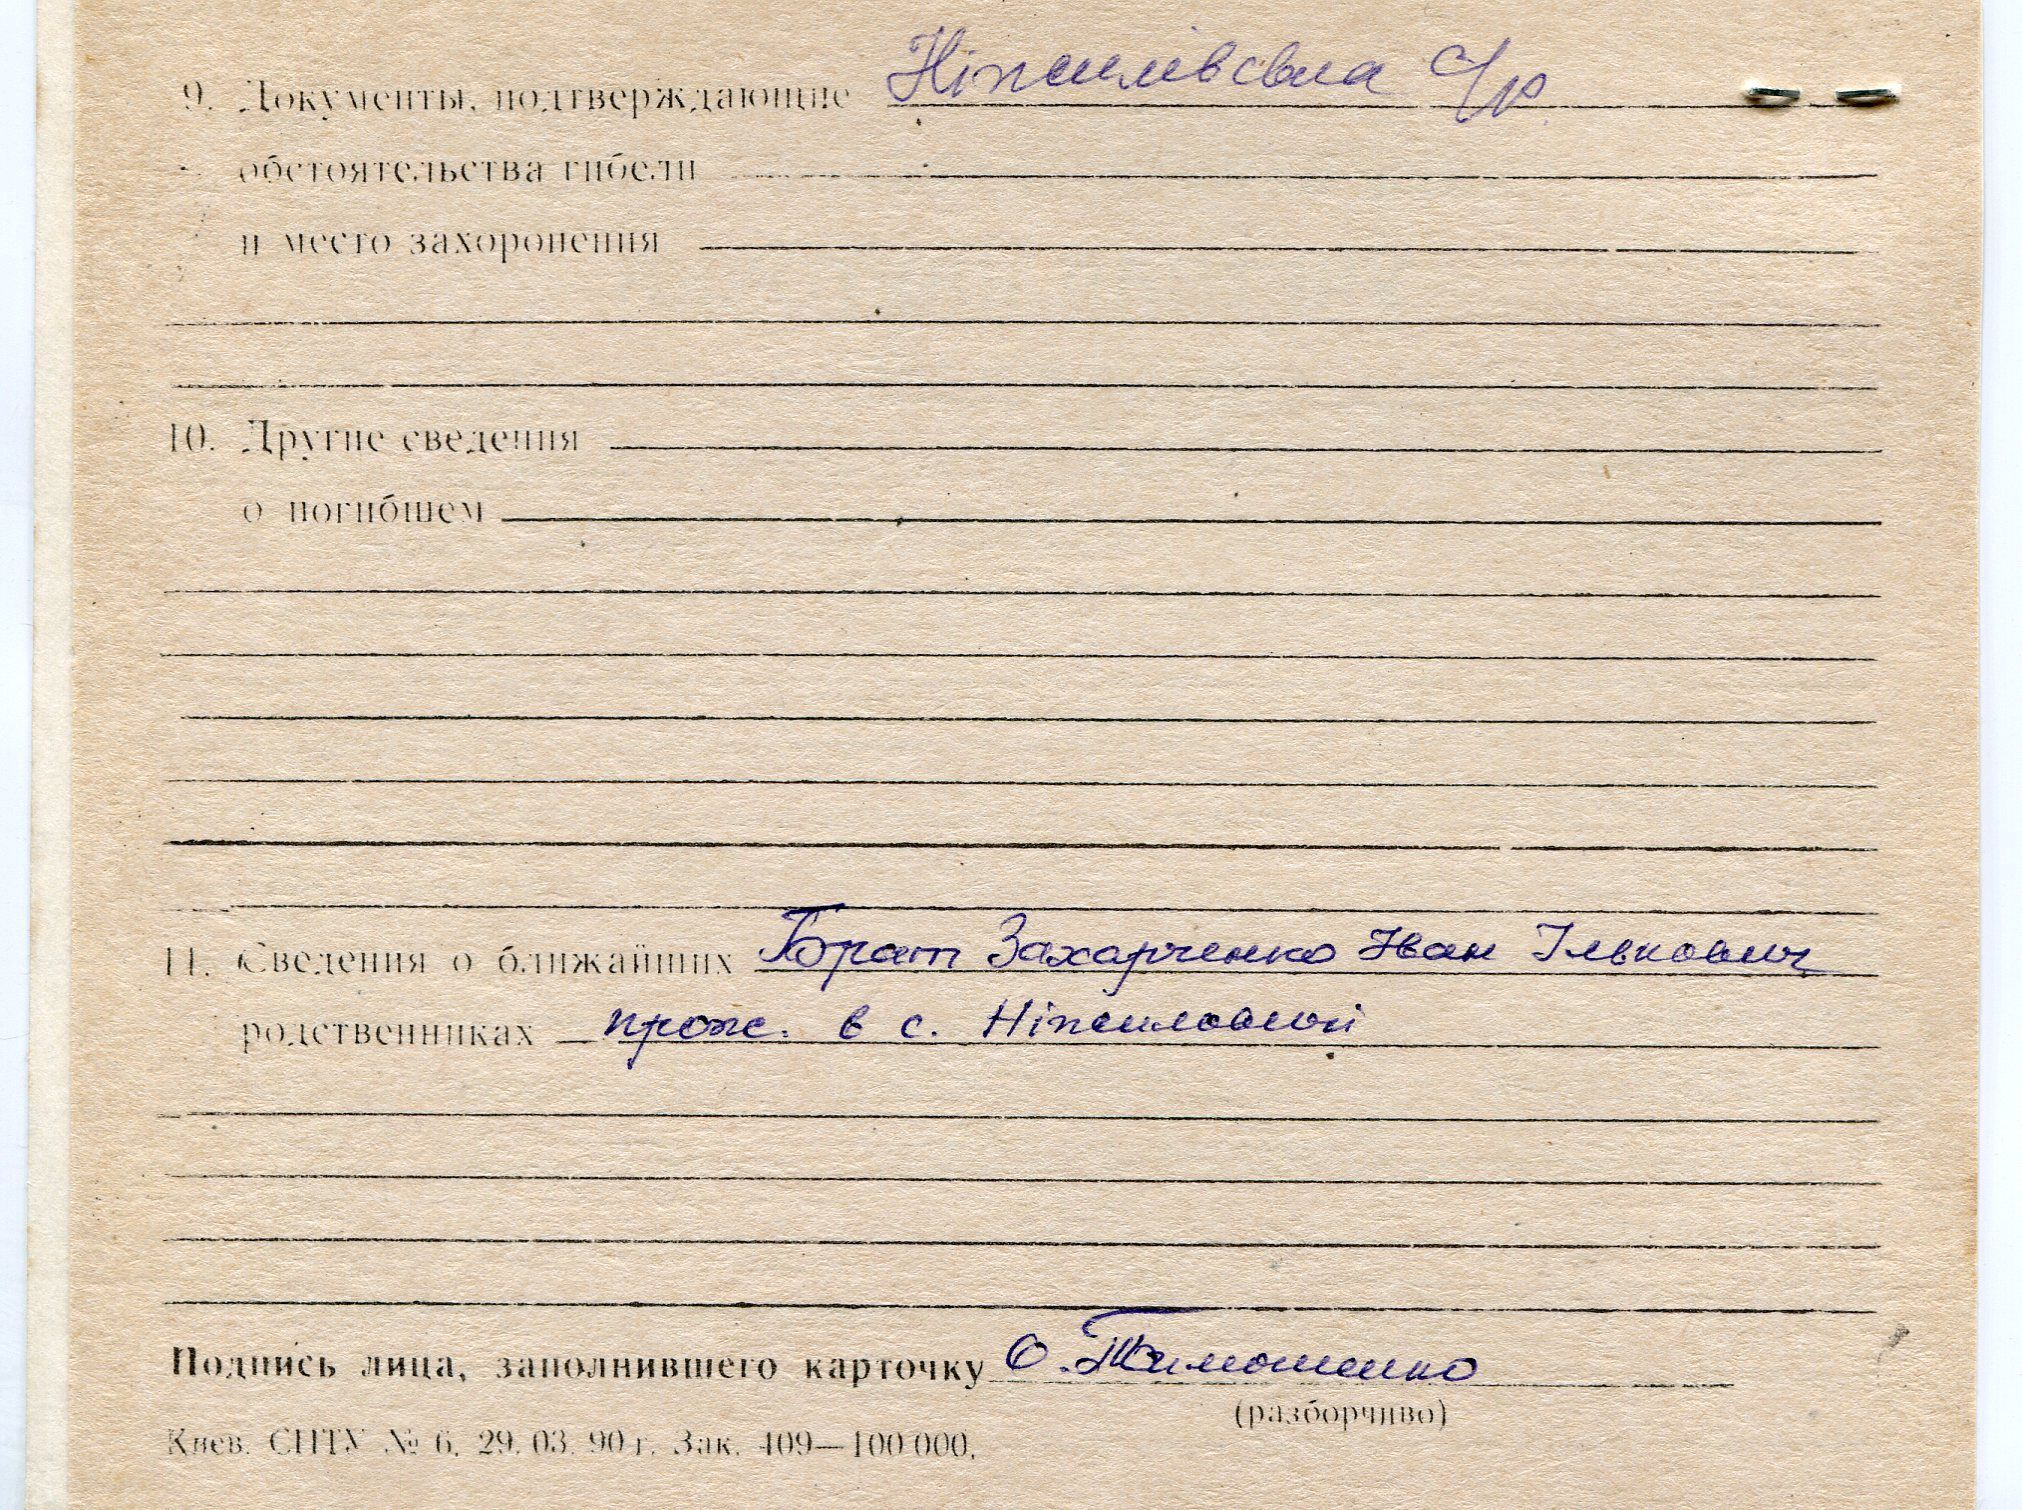 9. Документы, подтверждающие Ніжилівська с/р
обстоятельства гибели
и место захоронения
10. Другие сведения
о погибшем
11. Сведения о ближайших Брат Захарченко Іван Ількович
родственниках прож. в с. Ніжиловичі
Подпись лица, заполнившего карточку О. Тимошенко
(разборчиво)
Киев. СПТУ № 6. 29. 03. 90 г. Зак. 409—100 000.